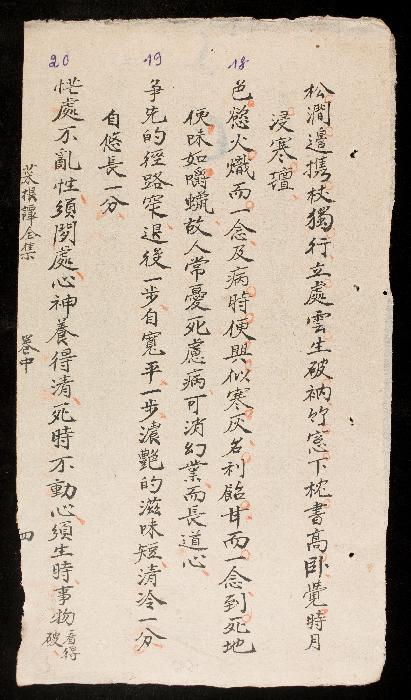 松澗邊携杖獨行立處雲生破衲竹窓下枕書高臥覺時月
浸寒壇
18
色慾火熾而一念及病時便興似寒灰名利飴甘而一念到死地
便味如嚼蠟故人常憂死慮病可消幻業而長道心
19
争先的徑路窄退後一步自寬平一步濃艷的滋味短清冷一分
自悠長一分
20
忙處不亂性須閑處心神養得清死時不動心須生時事物看得破
菜根譚全集 卷中 四